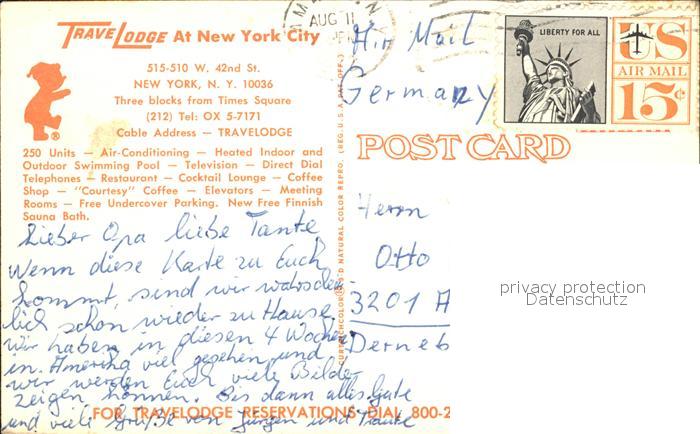 TraveLodge At New York City
515-510 W. 42nd St.
NEW YORK, N. Y. 10036
Three blocks from Times Square
(212) Tel: OX 5-7171
Cable Address — TRAVELODGE
250 Units — Air-Conditioning — Heated Indoor and
Outdoor Swimming Pool — Television — Direct Dial
Telephones — Restaurant — Cocktail Lounge — Coffee
Shop — "Courtesy" Coffee — Elevators — Meeting
Rooms — Free Undercover Parking. New Free Finnish
Sauna Bath.
Lieber Opa liebe Tante
Wenn diese Karte zu Euch
kommt, sind wir wahrschein
lich schon wieder zu Hause.
Wir haben in diesen 4 Wochen
in Amerika viel gesehen und
wir werden Euch viele Bilder
zeigen können. Bis dann alles Gute
und viele Grüße von Jürgen und
FOR TRAVELODGE RESERVATIONS DIAL 800-2
NATURAL COLOR REPRO. (REG. U.S.A. PAT. OFF.)
AUG 11
Air Mail
Germany
LIBERTY FOR ALL
US
AIR MAIL
15¢
POST CARD
Herrn
Otto
3201 A
Derneb
privacy protection
Datenschutz